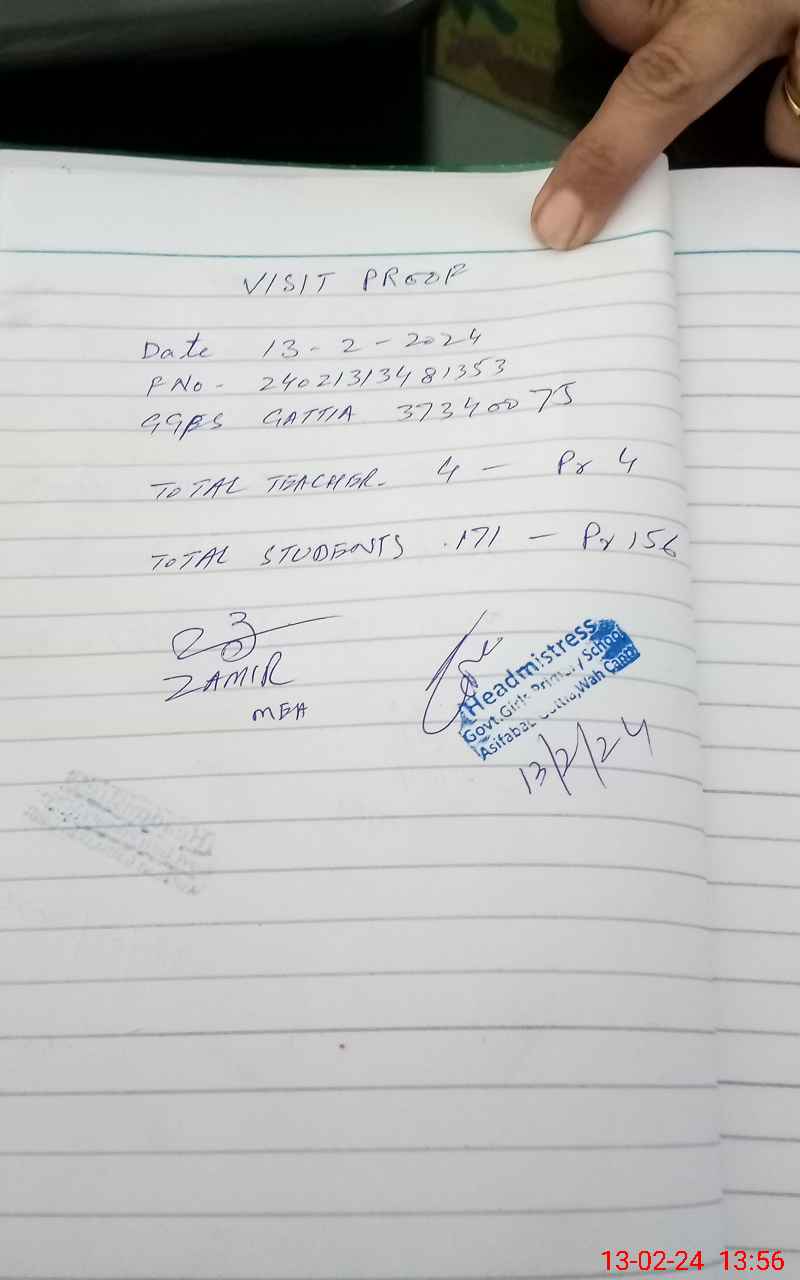 VISIT PROOF
Date 13-2-2024
FNo- 24021313481353
GGPS GATTIA 37340075
TOTAL TEACHER. 4 - Pr 4
TOTAL STUDENTS .171 - Pr 156
ZAMIR
MEA
Headmistress
Govt.Girls Primary School
Wah Cantt
13/2/24
13-02-24 13:56